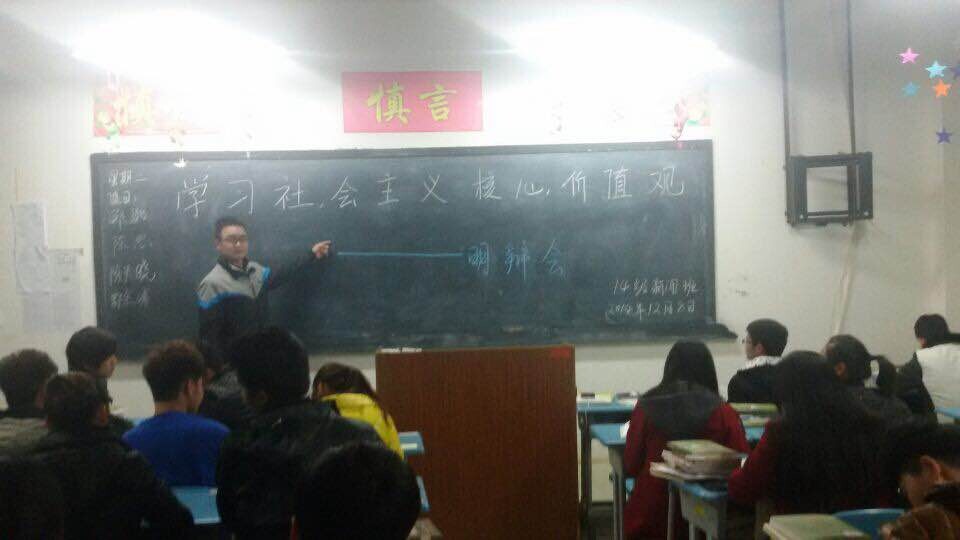 慎言
学习社会主义核心价值观
——明辩会
星期二
值日:
14级新闻班
2014年12月2日